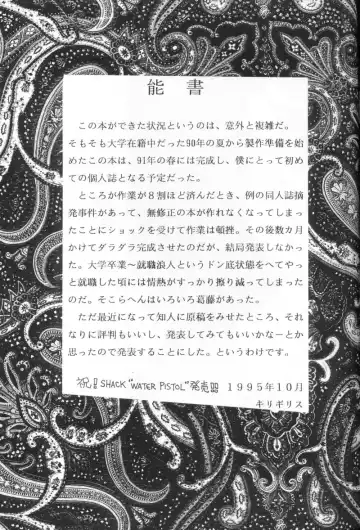 能書
この本ができた状況というのは、意外と複雑だ。
そもそも大学在籍中だった90年の夏から製作準備を始
めたこの本は、91年の春には完成し、僕にとって初め
ての個人誌となる予定だった。
ところが作業が８割ほど済んだとき、例の同人誌摘
発事件があって、無修正の本が作れなくなってしまっ
たことにショックを受けて作業は頓挫。その後数カ月
かけてダラダラ完成させたのだが、結局発表しなかっ
た。大学卒業〜就職浪人というドン底状態をへてやっ
と就職した頃には情熱がすっかり擦り減ってしまった
のだ。そこらへんはいろいろ葛藤があった。
ただ最近になって知人に原稿をみせたところ、それ
なりに評判もいいし、発表してみてもいいかなーとか
思ったので発表することにした。というわけです。
祝！SHACK “WATER PISTOL” 発売!!! 1995年10月
キリギリス